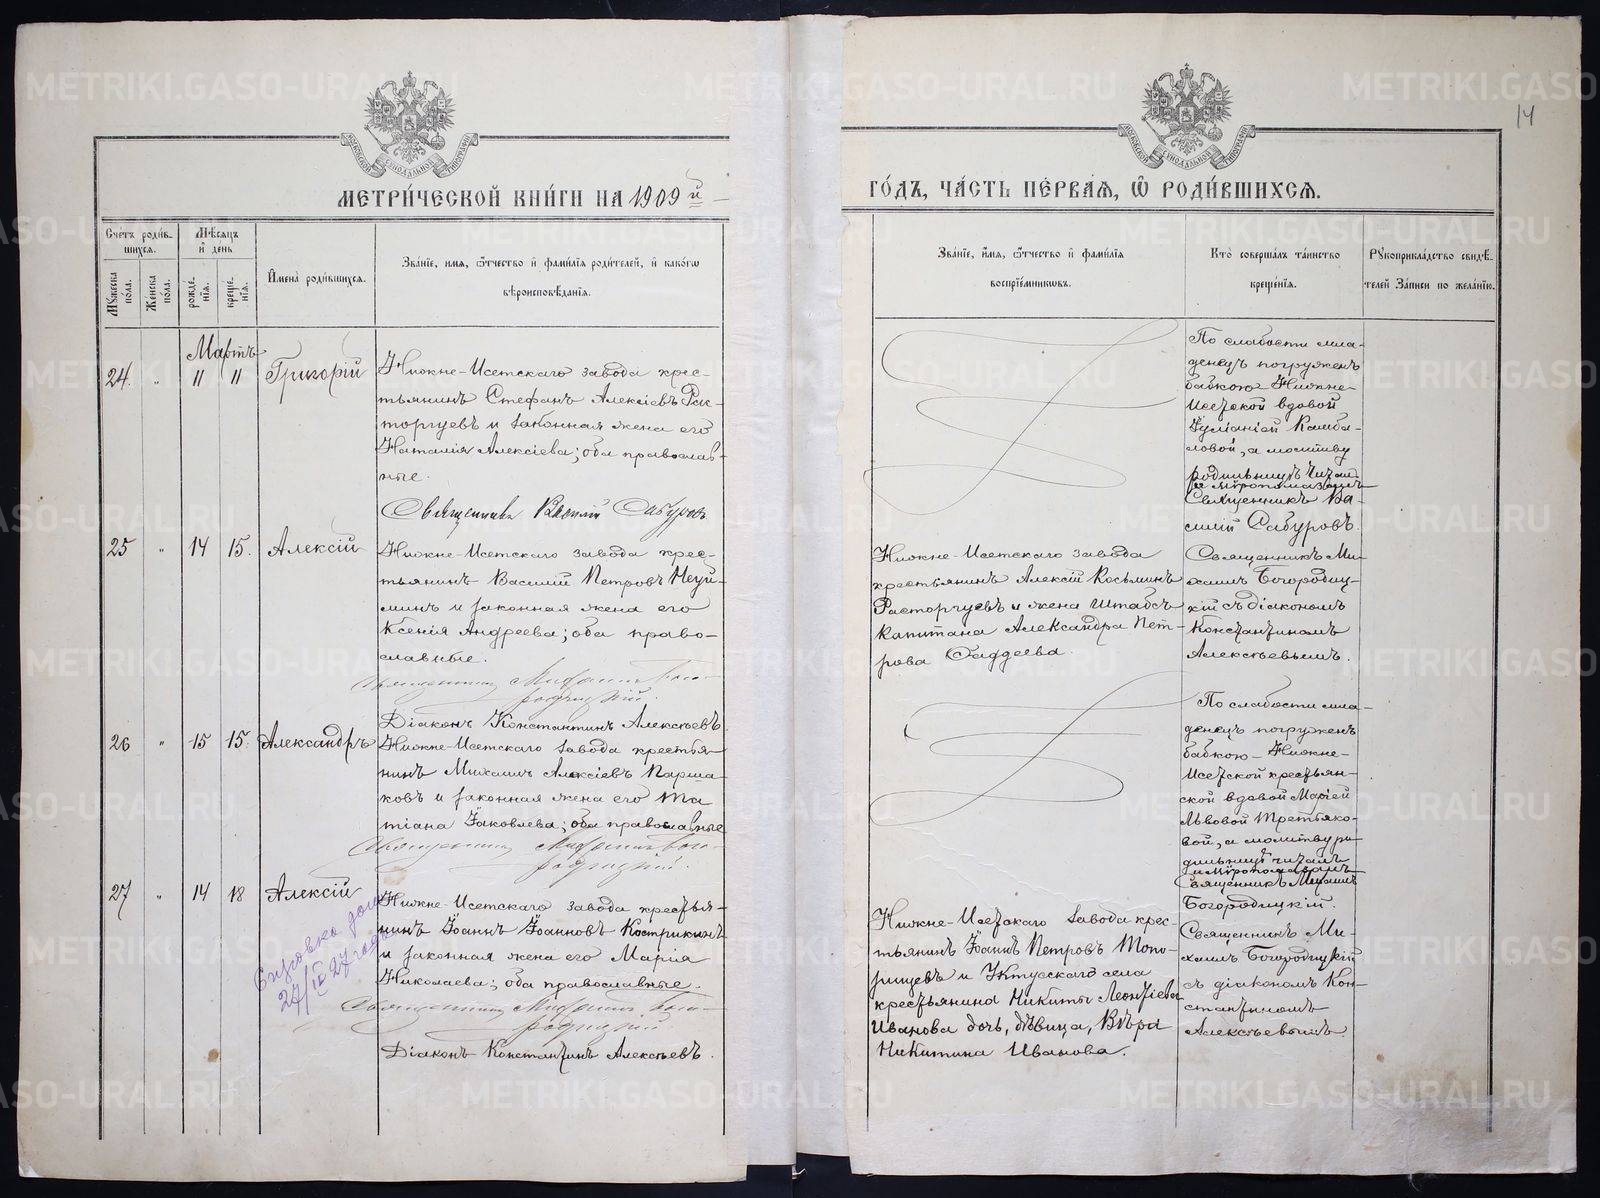 14
МЕТРИЧЕСКОЙ КНИГИ НА 1909й
ГОДЪ, ЧАСТЬ ПЕРВАЯ, Ѿ РОДИВШИХСЯ.
Счетъ родив-
шихся.
Мужеска
пола.
Женска
пола.
Мѣсяцъ
и день
рожде-
нія.
креще-
нія.
Имена родившихся.
Званіе, имя, ѿчество и фамилія родителей, и какого
вѣроисповѣданія.
Званіе, имя, ѿчество и фамилія
воспріемниковъ.
Кто совершалъ таинство
крещенія.
Рукоприкладство свидѣ-
телей записи по желанію.
Мартъ
24. " 11 11 Григорій
Нижне-Исетскаго завода крес-
тьянинъ Стефанъ Алексіевъ Рас-
торгуевъ и законная жена его
Наталія Алексіева; оба православ-
ные.
Священникъ Василій Сабуровъ
По слабости мла-
денецъ погруженъ
бабкою Нижне-
Исетской вдовой
Іуліаніей Камба-
ловой, а молитву
родильницѣ читалъ
и мѵропомазалъ
Священникъ Ва-
силій Сабуровъ.
25 " 14 15. Алексій
Нижне-Исетскаго завода крес-
тьянинъ Василій Петровъ Неуй-
минъ и законная жена его
Ксенія Андреева; оба право-
славные.
Священникъ Михаилъ Бого-
родицкій.
Діаконъ Константинъ Алексѣевъ
Нижне-Исетскаго завода
крестьянинъ Алексій Косьминъ
Расторгуевъ и жена Штабсъ
Капитана Александра Пет-
рова Фаддеева.
Священникъ Ми-
хаилъ Богородиц-
кій съ діакономъ
Константиномъ
Алексѣевымъ.
26 " 15 15. Александръ
Нижне-Исетскаго завода крестья-
нинъ Михаилъ Алексіевъ Парша-
ковъ и законная жена его Та-
тіана Іаковлева; оба православные
Священникъ Михаилъ Бого-
родицкій.
По слабости мла-
денецъ погруженъ
бабкою Нижне-
Исетской крестьян-
ской вдовой Маріей
Львовой Третьяко-
вой, а молитву ро-
дильницѣ читалъ
и мѵропомазалъ
Священникъ Михаилъ
Богородицкій.
27 " 14 18 Алексій
Нижне-Исетскаго завода крестья-
нинъ Іоаннъ Іоанновъ Кострикинъ
и законная жена его Марія
Николаева; оба православные.
Священникъ Михаилъ Бого-
родицкій
Діаконъ Константинъ Алексѣевъ.
27/IV 27 года
Нижне-Исетскаго завода крес-
тьянинъ Іоаннъ Петровъ Топо-
рищевъ и Уктусскаго села
крестьянина Никиты Леонтіева
Иванова дочь, дѣвица, Вѣра
Никитина Иванова.
Священникъ Ми-
хаилъ Богородицкій
съ діакономъ Кон-
стантиномъ
Алексѣевымъ.